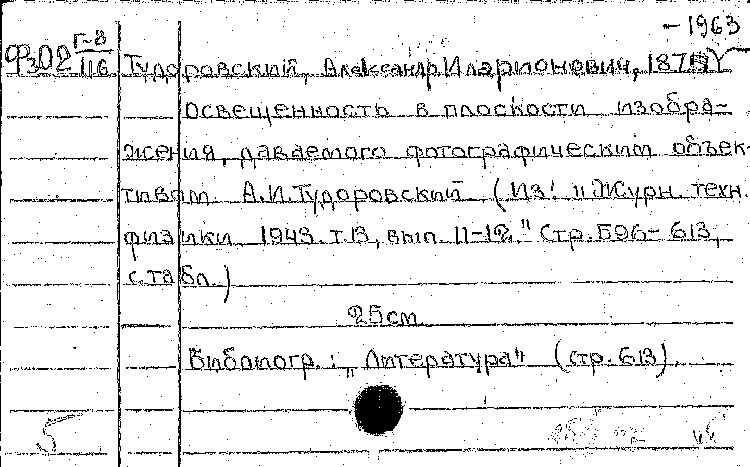 -1963
Ф302 Г-8/116 Тудоровский, Александр Иларионович, 1875
Освещенность в плоскости изобра-
жения, даваемого фотографическим объек-
тивом. А.И.Тудоровский (Из: „Журн. техн.
физики. 1943. т.13, вып. 11-12." Стр. 596-613,
с табл.)
25см
Библиогр.: „Литература" (стр. 613).
5